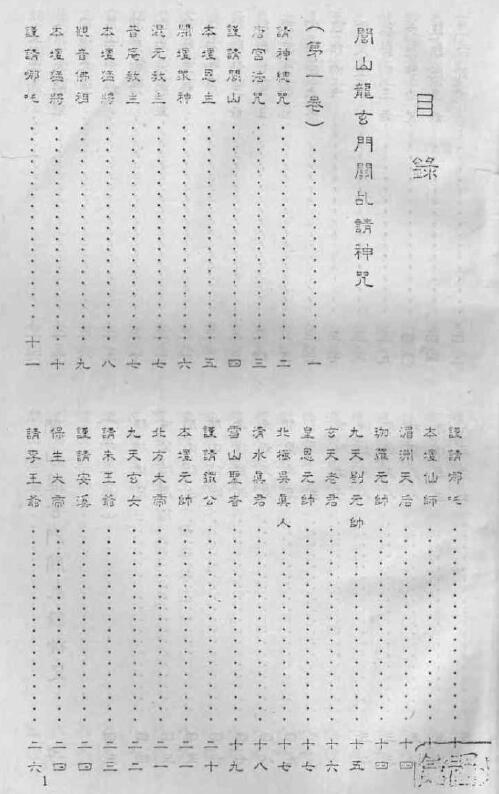 目錄
閭山龍玄門關乩請神咒
(第一卷)………一
請神總咒………二
唐宮法咒………三
謹請閭山………四
本壇恩主………五
開壇眾神………六
混元教主………七
普庵教主………七
本壇猛將………八
觀音佛祖………九
本壇猛將………十
謹請哪吒………十一
謹請哪吒………十
本壇仙師………十
湄洲天后………十四
珈羅元帥………十四
九天劉元帥………十五
玄天老君………十六
皇恩元帥………十七
北極吳真人………十七
清水真君………十八
雪山聖者………十九
謹請鐵公………二十
本壇元帥………二一
北方大帝………二一
九天玄女………二二
請朱王爺………二三
謹請安溪………二四
保生大帝………二四
請李王爺………二六
1